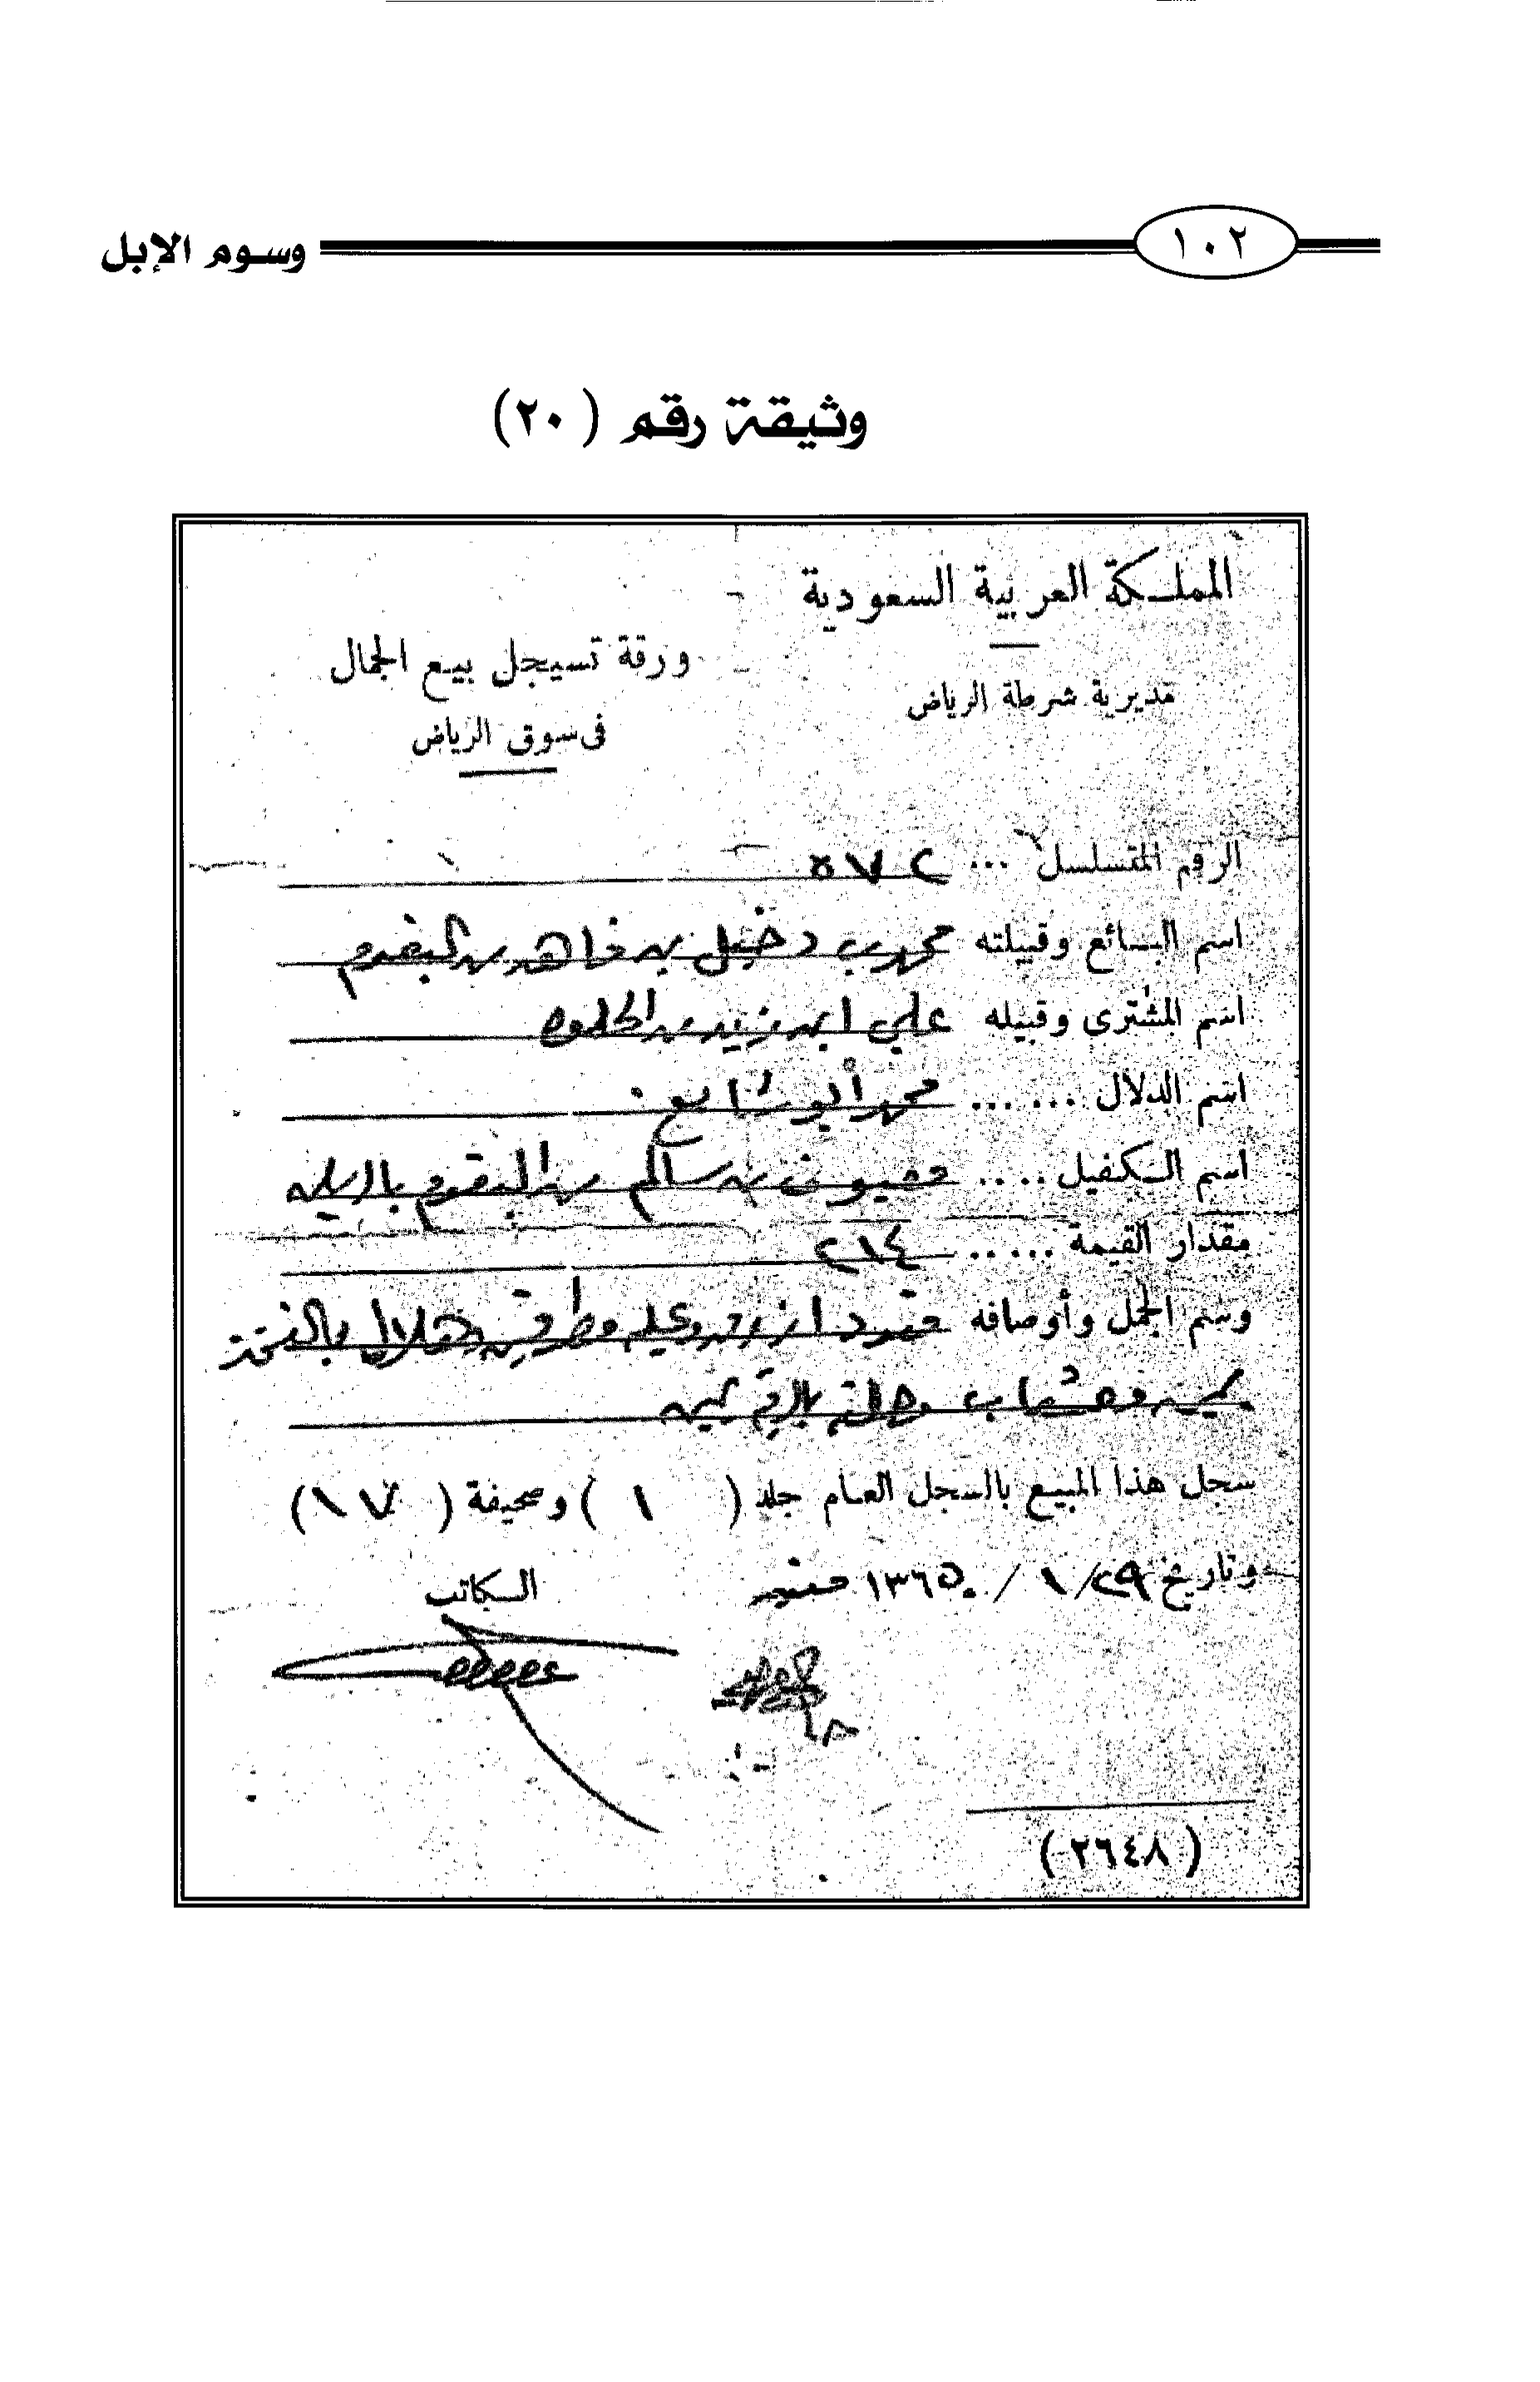 وسوم الإبل
١٠٢
وثيقة رقم (٢٠)
المملكة العربية السعودية
مديرية شرطة الرياض
ورقة تسيجل بيع الجمال
فى سوق الرياض
الرقم المتسلسل ... ٥٧٢
اسم البائع وقبيلته محمد بن دخيل بن من البقوم
اسم المشترى وقبيله علي ابن زيد من
اسم الدلال ...... محمد أبو شايع
اسم الكفيل .... بن سالم من البقوم
مقدار القيمة ..... ٢١٤
وسم الجمل وأوصافه قعود ازرق وعليه مطرقين وهلال بالفخذ
يمين
سجل هذا المبيع بالسجل العام جلد ( ١ ) وصحيفة ( ١٧ )
وتاريخ ٢٩/ ١ / ١٣٦٥
الكاتب
(٢٦٤٨)